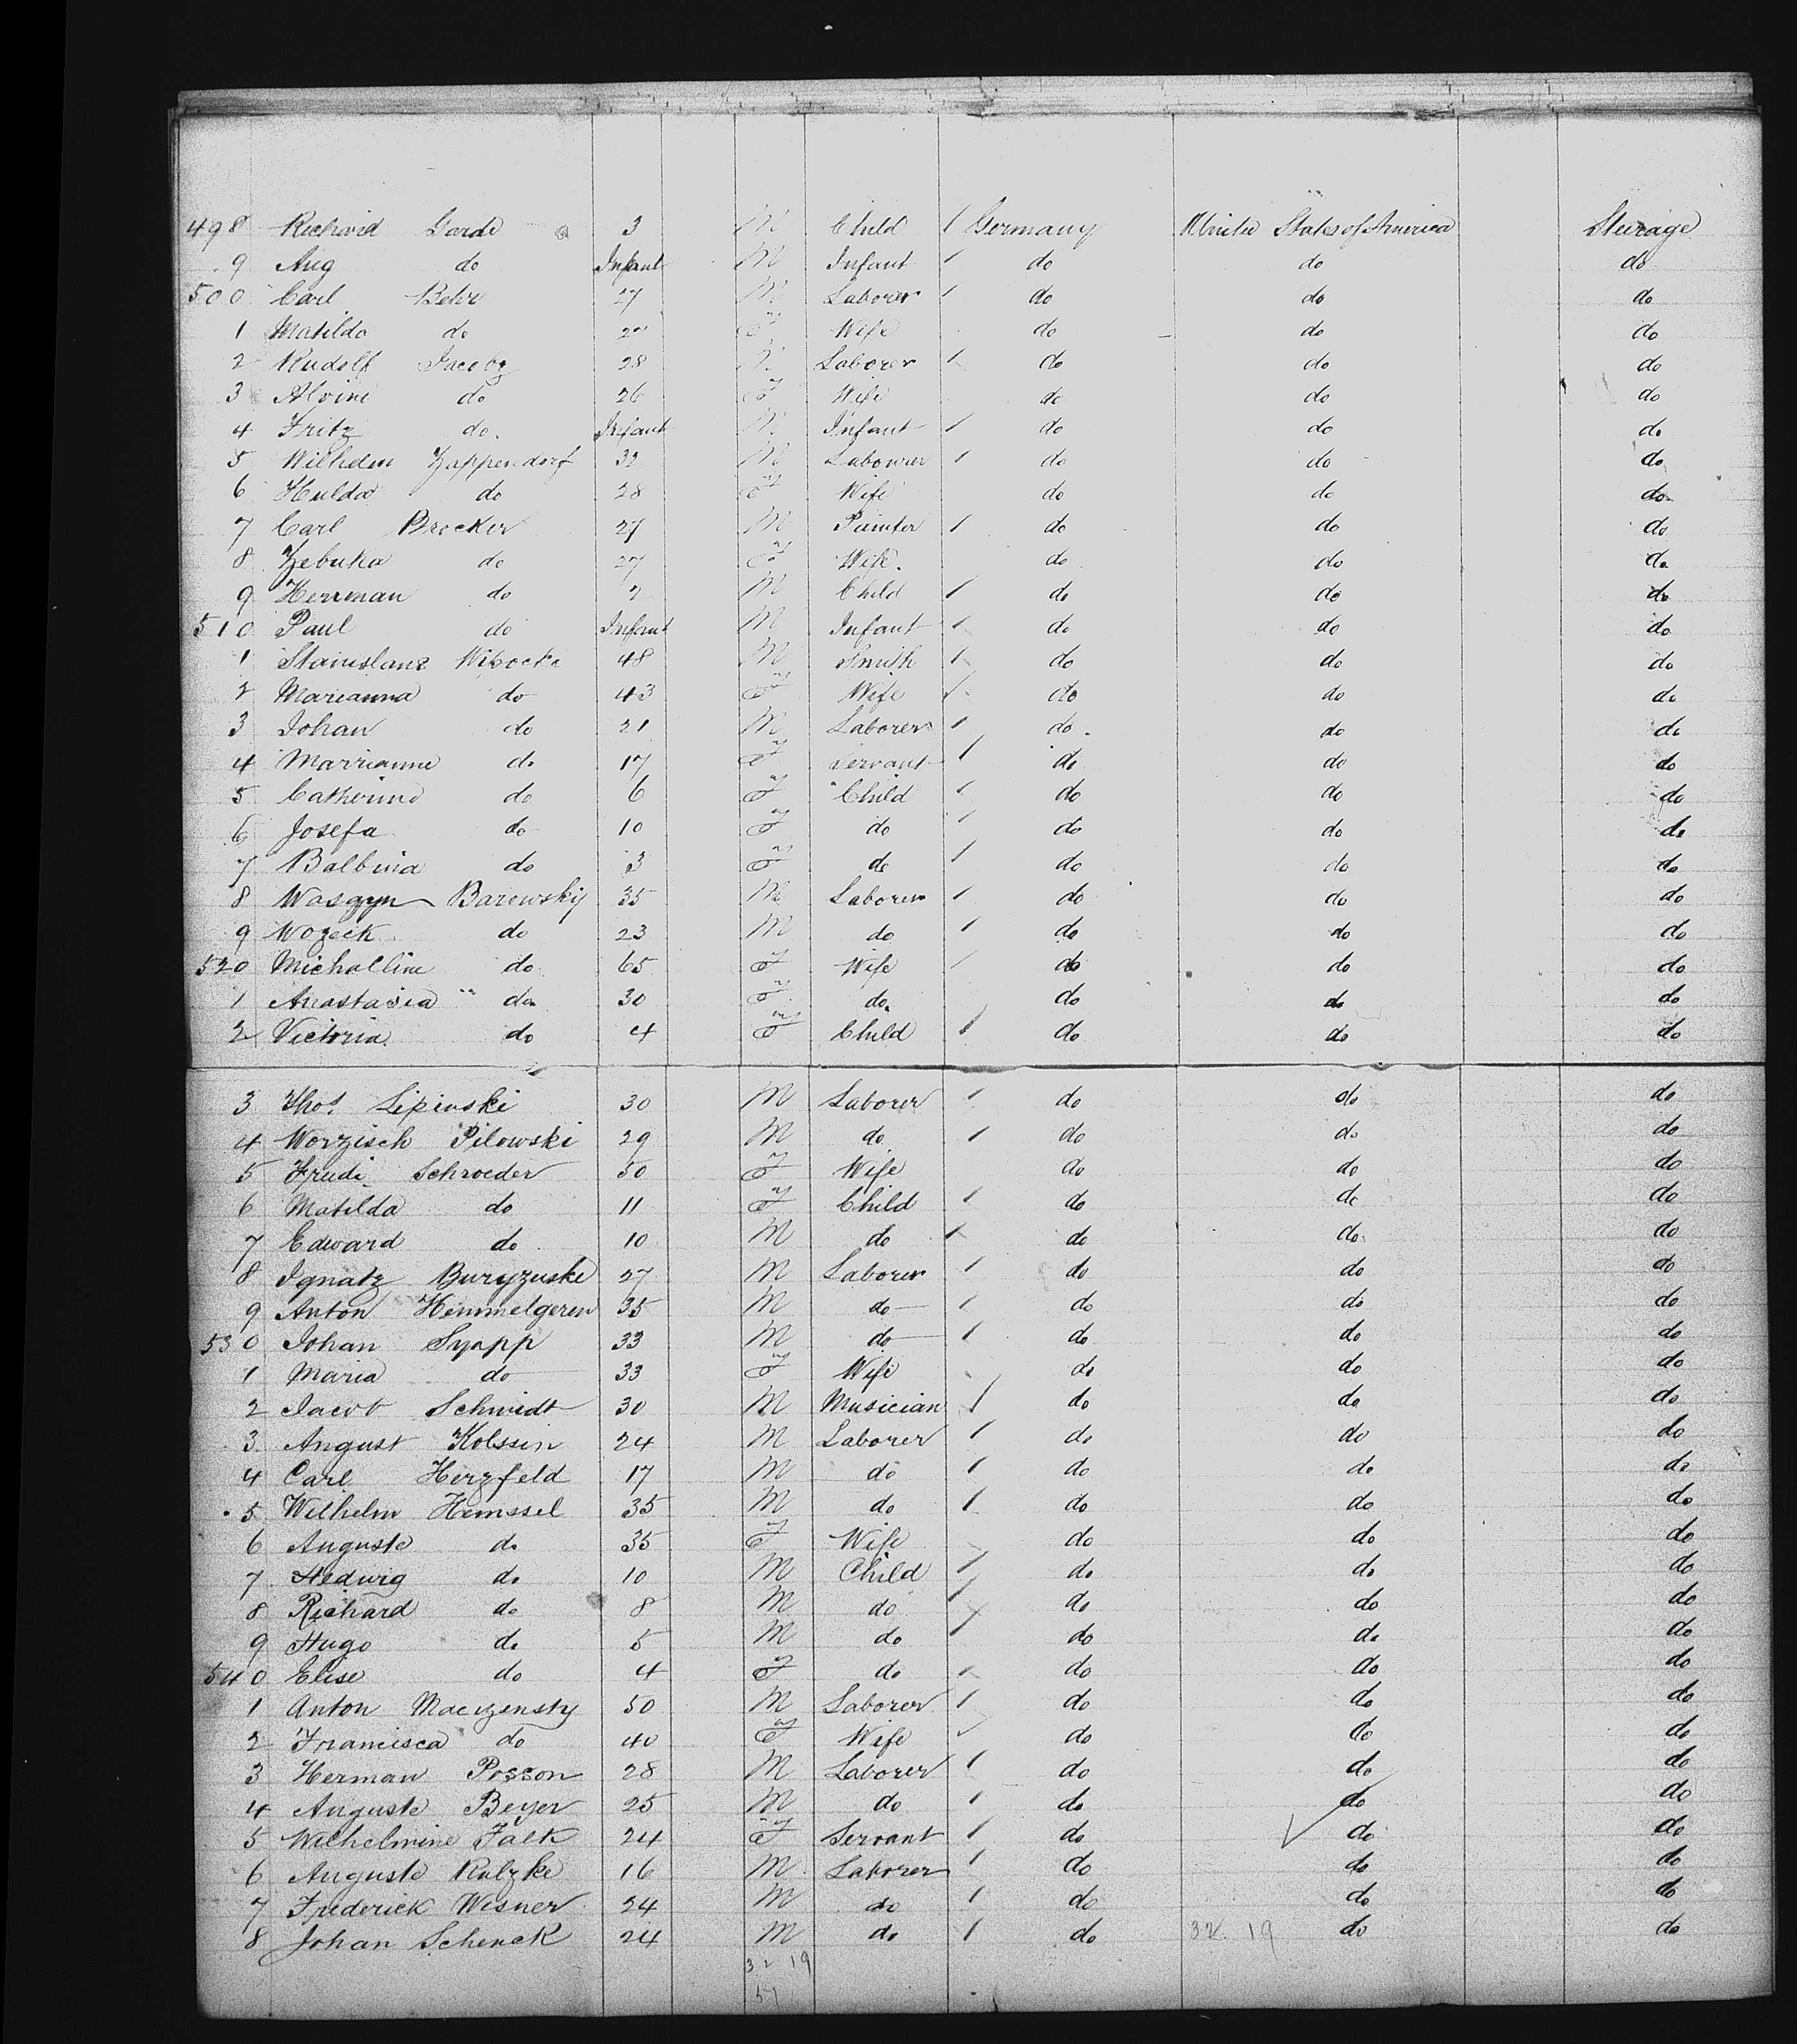 498 Richard Garde 3 M Child / Germany United States of America Steerage
9 Aug do Infant M Infant / do do do
500 Carl Behr 27 M Laborer / do do do
1 Matilda do F Wife do do do
2 Rudolf Jacoby 28 M Laborer / do do do
3 Alvine do 26 F Wife do do do
4 Fritz do. Infant M Infant / do do do
5 Wilhelm Zappendorf 32 M Labourer / do do do
6 Hulda do 28 F Wife do do do
7 Carl Brocker 27 M Painter / do do do
8 Zebuka do 27 F Wife. do do do
9 Herrman do 2 M Child / do do do
510 Paul do Infant M Infant / do do do
1 Stanislaus Wibocka 48 M Smith / do do do
2 Marianna do 43 F Wife / do do do
3 Johan do 21 M Laborer / do do do
4 Marrianne do 17 F Servant / do do do
5 Catherine do 6 F Child / do do do
6 Josefa do 10 F do / do do do
7 Balbina do 3 F do / do do do
8 Wasgyn Barowskij 35 M Laborer / do do do
9 Wozeck do 23 M do / do do do
520 Michalline do 65 F Wife / do do do
1 Anastasia " do 30 F do. / do do do
2 Victoria do 4 F Child / do do do
3 Thos Lipinski 30 M Laborer / do do do
4 Worzisch Pilowski 29 M do / do do do
5 Trudi Schroeder 50 F Wife do do do
6 Matilda do 11 F Child / do do do
7 Edward do 10 M do / do do do
8 Ignatz Buryzuske 27 M Laborer / do do do
9 Anton Hemmelgeren 35 M do / do do do
530 Johan Syapp 33 M do / do do do
1 Maria do 33 F Wife do do do
2 Jacob Schmidt 30 M Musician / do do do
3 August Kolssin 24 M Laborer / do do do
4 Carl Herzfeld 17 M do / do do do
5 Wilhelm Hemssel 35 M do / do do do
6 Auguste do 35 F Wife do do do
7 Hedwig do 10 M Child / do do do
8 Richard do 8 M do / do do do
9 Hugo do 5 M do / do do do
540 Elise do 4 F do / do do do
1 Anton Maczensty 50 M Laborer / do do do
2 Francisca do 40 F Wife do do do
3 Herman Posson 28 M Laborer / do do do
4 Auguste Beyer 25 M do / do do do
5 Wilhelmine Falk 24 F Servant / do do do
6 Auguste Rulzke 16 M Laborer / do do do
7 Frederick Wisner 24 M do / do do do
8 Johan Schenck 24 M do / do 32. 19 do do
32 19
51